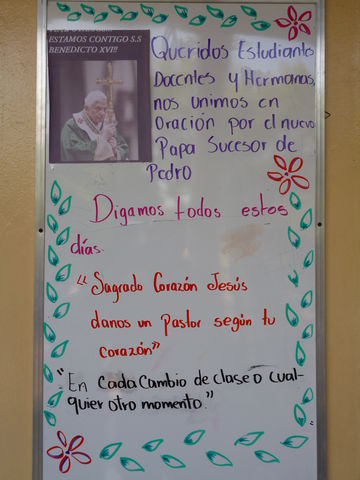 ESTAMOS CONTIGO S.S
BENEDICTO XVI!!!
Queridos Estudiantes
Docentes y Hermanas,
nos unimos en
Oración por el nuevo
Papa Sucesor de
Pedro
Digamos todos estos
días.
"Sagrado Corazón Jesús
danos un Pastor según tu
corazón"
"En cada cambio de clase o cual-
quier otro momento."